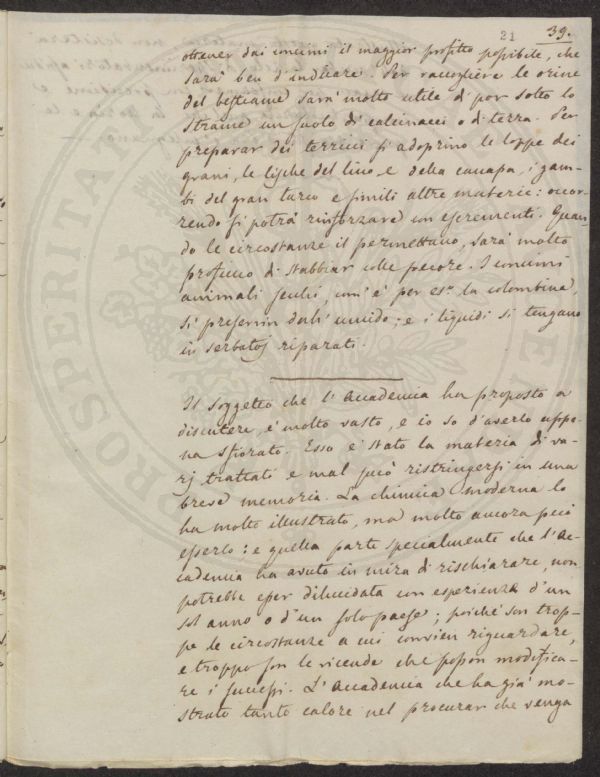 21 39.
ottener dai concimi il maggior profitto possibile, che
sarà ben d'indicare. Per raccogliere le orine
del bestiame sarà molto utile di por sotto lo
strame un suolo di calcinacci o di terra. Per
preparar dei terricci si adoprino le loppe dei
grani, le lische del lino, e della canapa, i gam-
bi del gran turco e simili altre materie: occor-
rendo si potrà rinforzare con escrementi. Quan-
do le circostanze il permettano, sarà molto
proficuo di stabbiar colle pecore. I concimi
animali secchi, com'è per es.º la colombina,
si preservin dall'umido; e i liquidi si tengano
in serbatoj riparati.
Il soggetto che l'Accademia ha proposto a
discutere, è molto vasto, e io so d'averlo appe-
na sfiorato. Esso è stato la materia di va-
rj trattati e mal può ristringersi in una
breve memoria. La chimica moderna lo
ha molto illustrato, ma molto ancora può
esserlo: e quella parte specialmente che l'Ac-
cademia ha avuto in mira di rischiarare, non
potrebbe esser dilucidata con esperienza d'un
sol anno o d'un solo paese; poiché son trop-
pe le circostanze a cui convien riguardare,
e troppo son le vicende che posson modifica-
re i successi. L'Accademia che ha già mo-
strato tanto calore nel procurar che venga
PROSPERITA